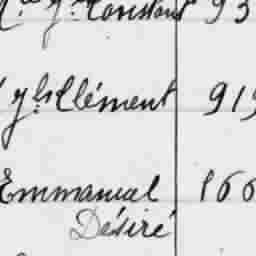 Constant 93
Clément 919
Emmanuel 166
Désiré